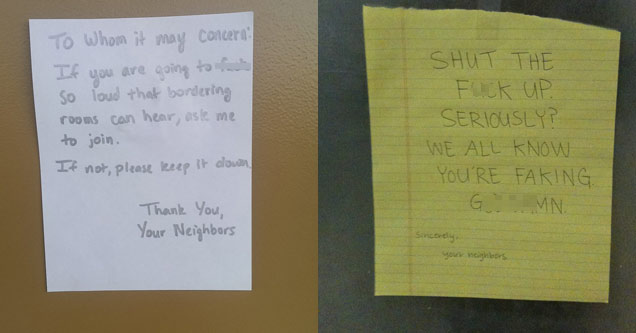 To Whom it may concern:
If you are going to
so loud that bordering
rooms can hear, ask me
to join.
If not, please keep it down.
Thank You,
Your Neighbors
SHUT THE
F CK UP.
SERIOUSLY?
WE ALL KNOW
YOU'RE FAKING.
G MN.
sincerely,
your neighbors.